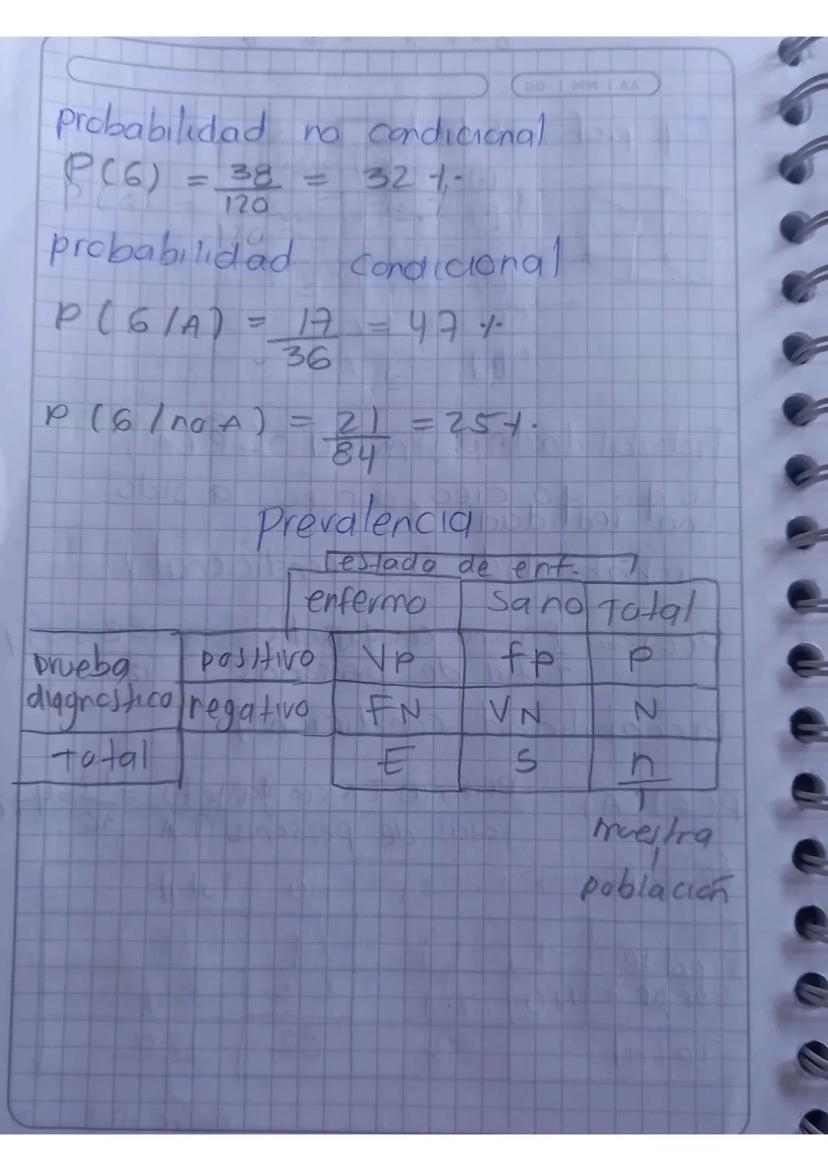 probabilidad no condicional
P(G) = 38/120 = 32 %.
probabilidad condicional
P(G/A) = 17/36 = 47 %
P(G/no A) = 21/84 = 25%.
Prevalencia
estado de enf.
enfermo sano Total
prueba diagnostico positivo VP FP P
negativo FN VN N
Total E S n
muestra
población